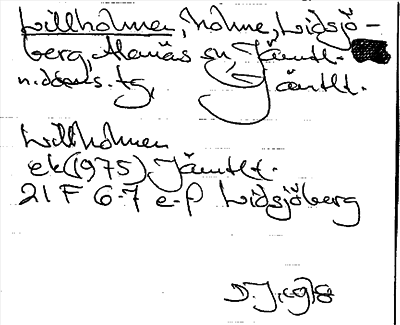 Lillholmen, holme, Lidsjö-
berg, Alanäs sn, Jämtl.
n.doms.tg, Jämtlt.
Lillholmen
ek(1975) Jämtlt.
21 F 6-7 e-f Lidsjöberg